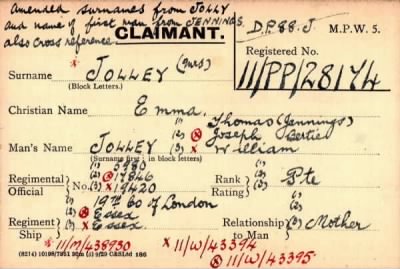 Amended surnames from JOLLY
and name of first man from JENNINGS
also cross reference.
CLAIMANT.
D.P.88.J M.P.W. 5.
Registered No.
11/PP/28174
Surname JOLLEY (Mrs)
(Block Letters.)
Christian Name Emma.
(1) Thomas (Jennings)
Man's Name JOLLEY (2) Joseph Bertie
(Surname first, in block letters) (3) x William
Regimental (1) 5980
Official No. (2) 17846
(3) x 19420
Rank (1) (2) Pte
Rating (3)
(1) 19th Co of London
Regiment (2) Essex
Ship (3) x Essex.
Relationship (1) (2) Mother
to Man (3)
11/M/438930
x 11/W/43394
11/W/43395